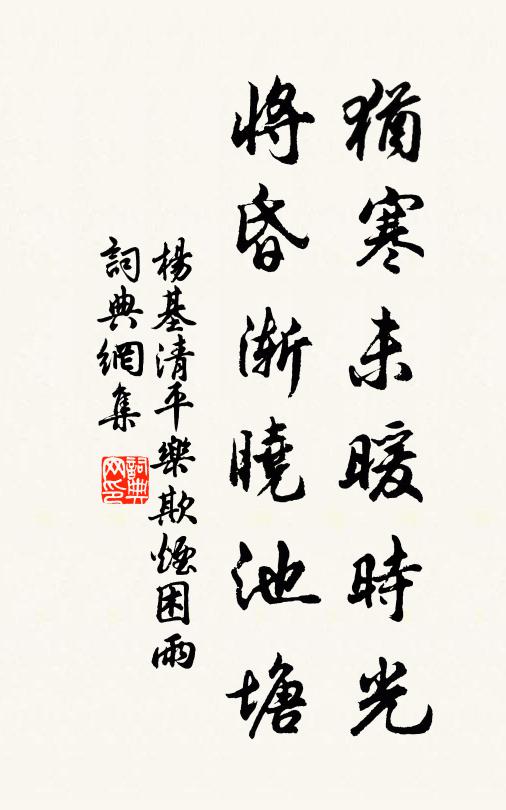 猶寒未暖時光
將昏漸曉池塘
楊基清平樂欺煙困雨
詞典網集
詞典網印